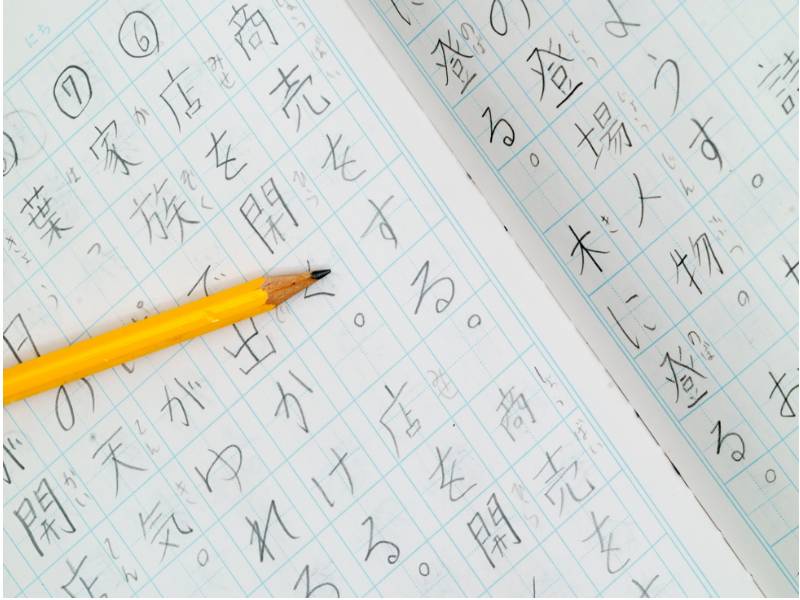 ようす。
の登場人物。お
に登る。木に登る。
商売をする。商売をす
⑥店を開く。店を開く
⑦家族で出かける。
葉っぱがゆれる
日の天気。
が開店